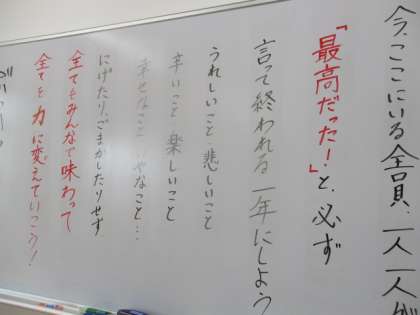 今、ここにいる全員、一人一人が
「最高だった！」と、必ず
言って終われる一年にしよう
うれしいこと 悲しいこと
辛いこと 楽しいこと
幸せなこと いやなこと…
にげたり、ごまかしたりせず
全てをみんなで味わって
全てを力に変えていこう！